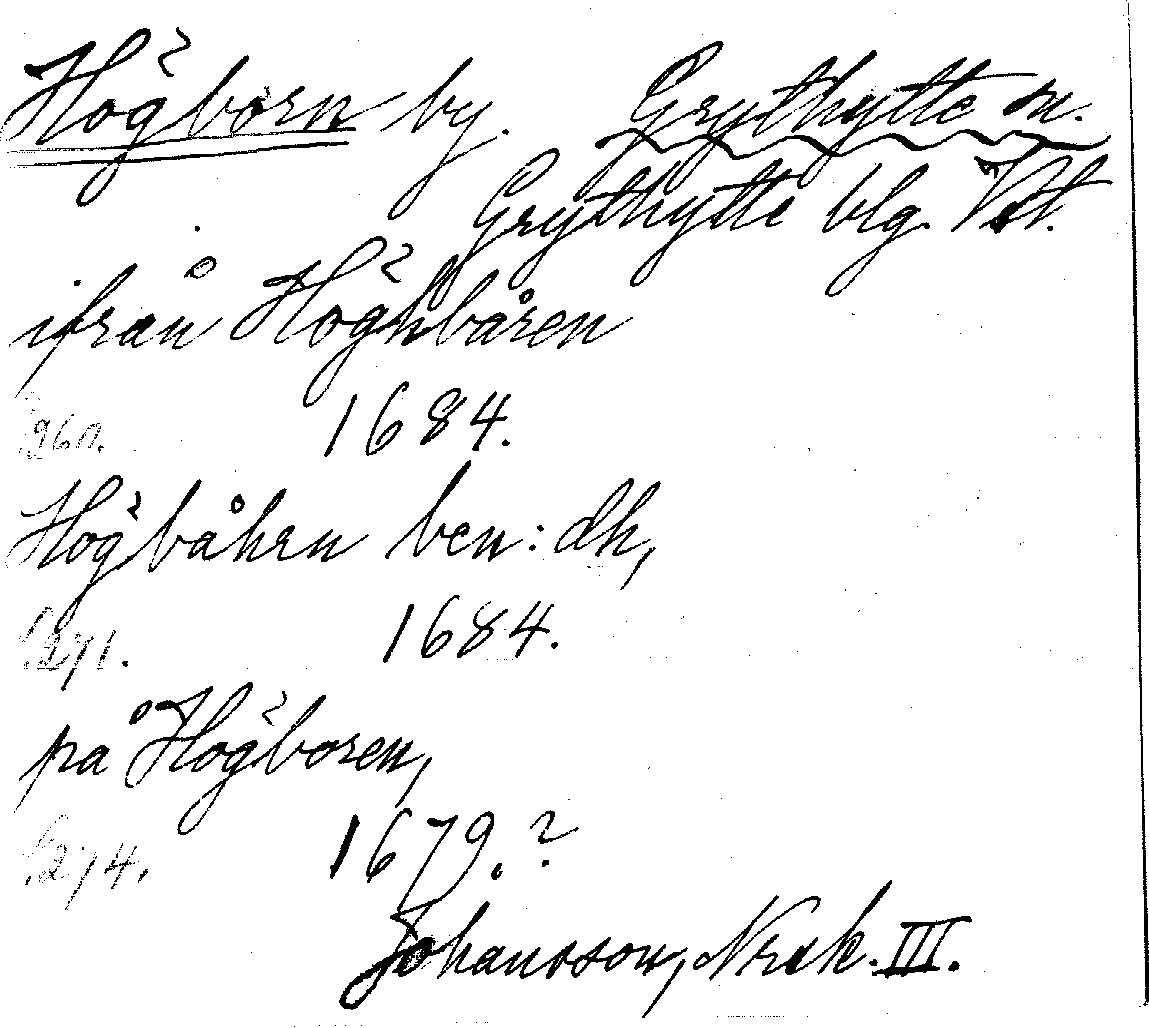 Högborn by. Grythytte sn.
Grythytte blg. Vstl.
ifrån Höghbåren
s. 260. 1684.
Högbåhrn ben: dh,
s. 271. 1684.
på Högboren,
s. 274. 1679.?
Johansson, Noraskog. III.